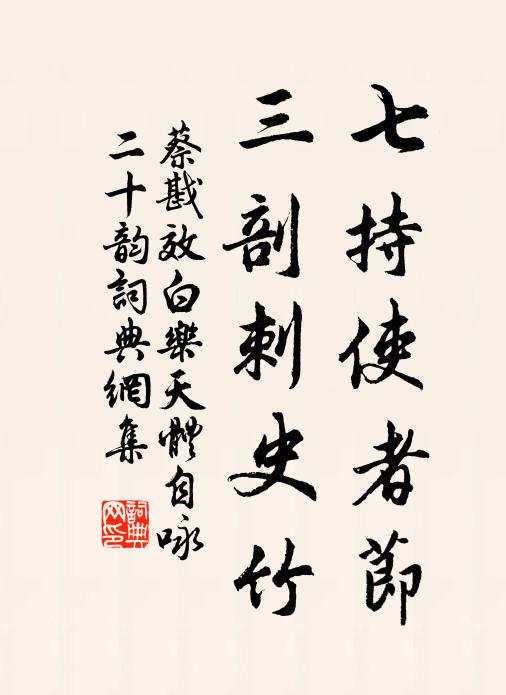 七持使者節
三剖刺史竹
蔡戡效白樂天體自咏
二十韵詞典網集
詞典网印